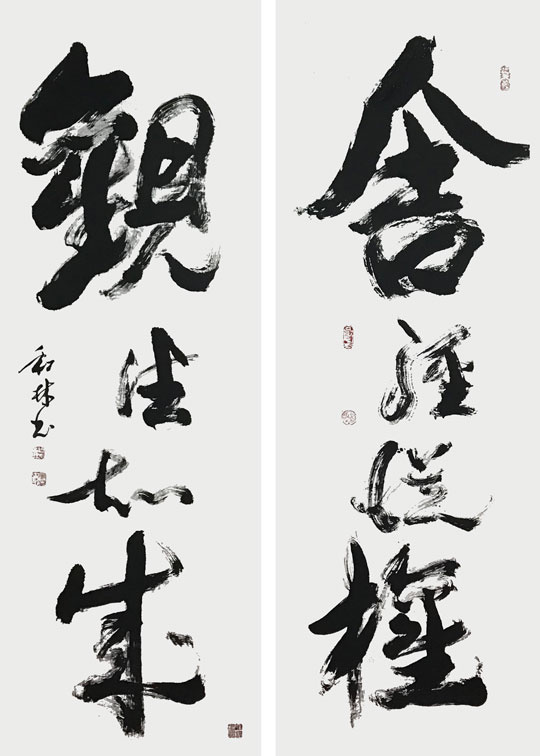 舍經從權
觀往知來
和林書